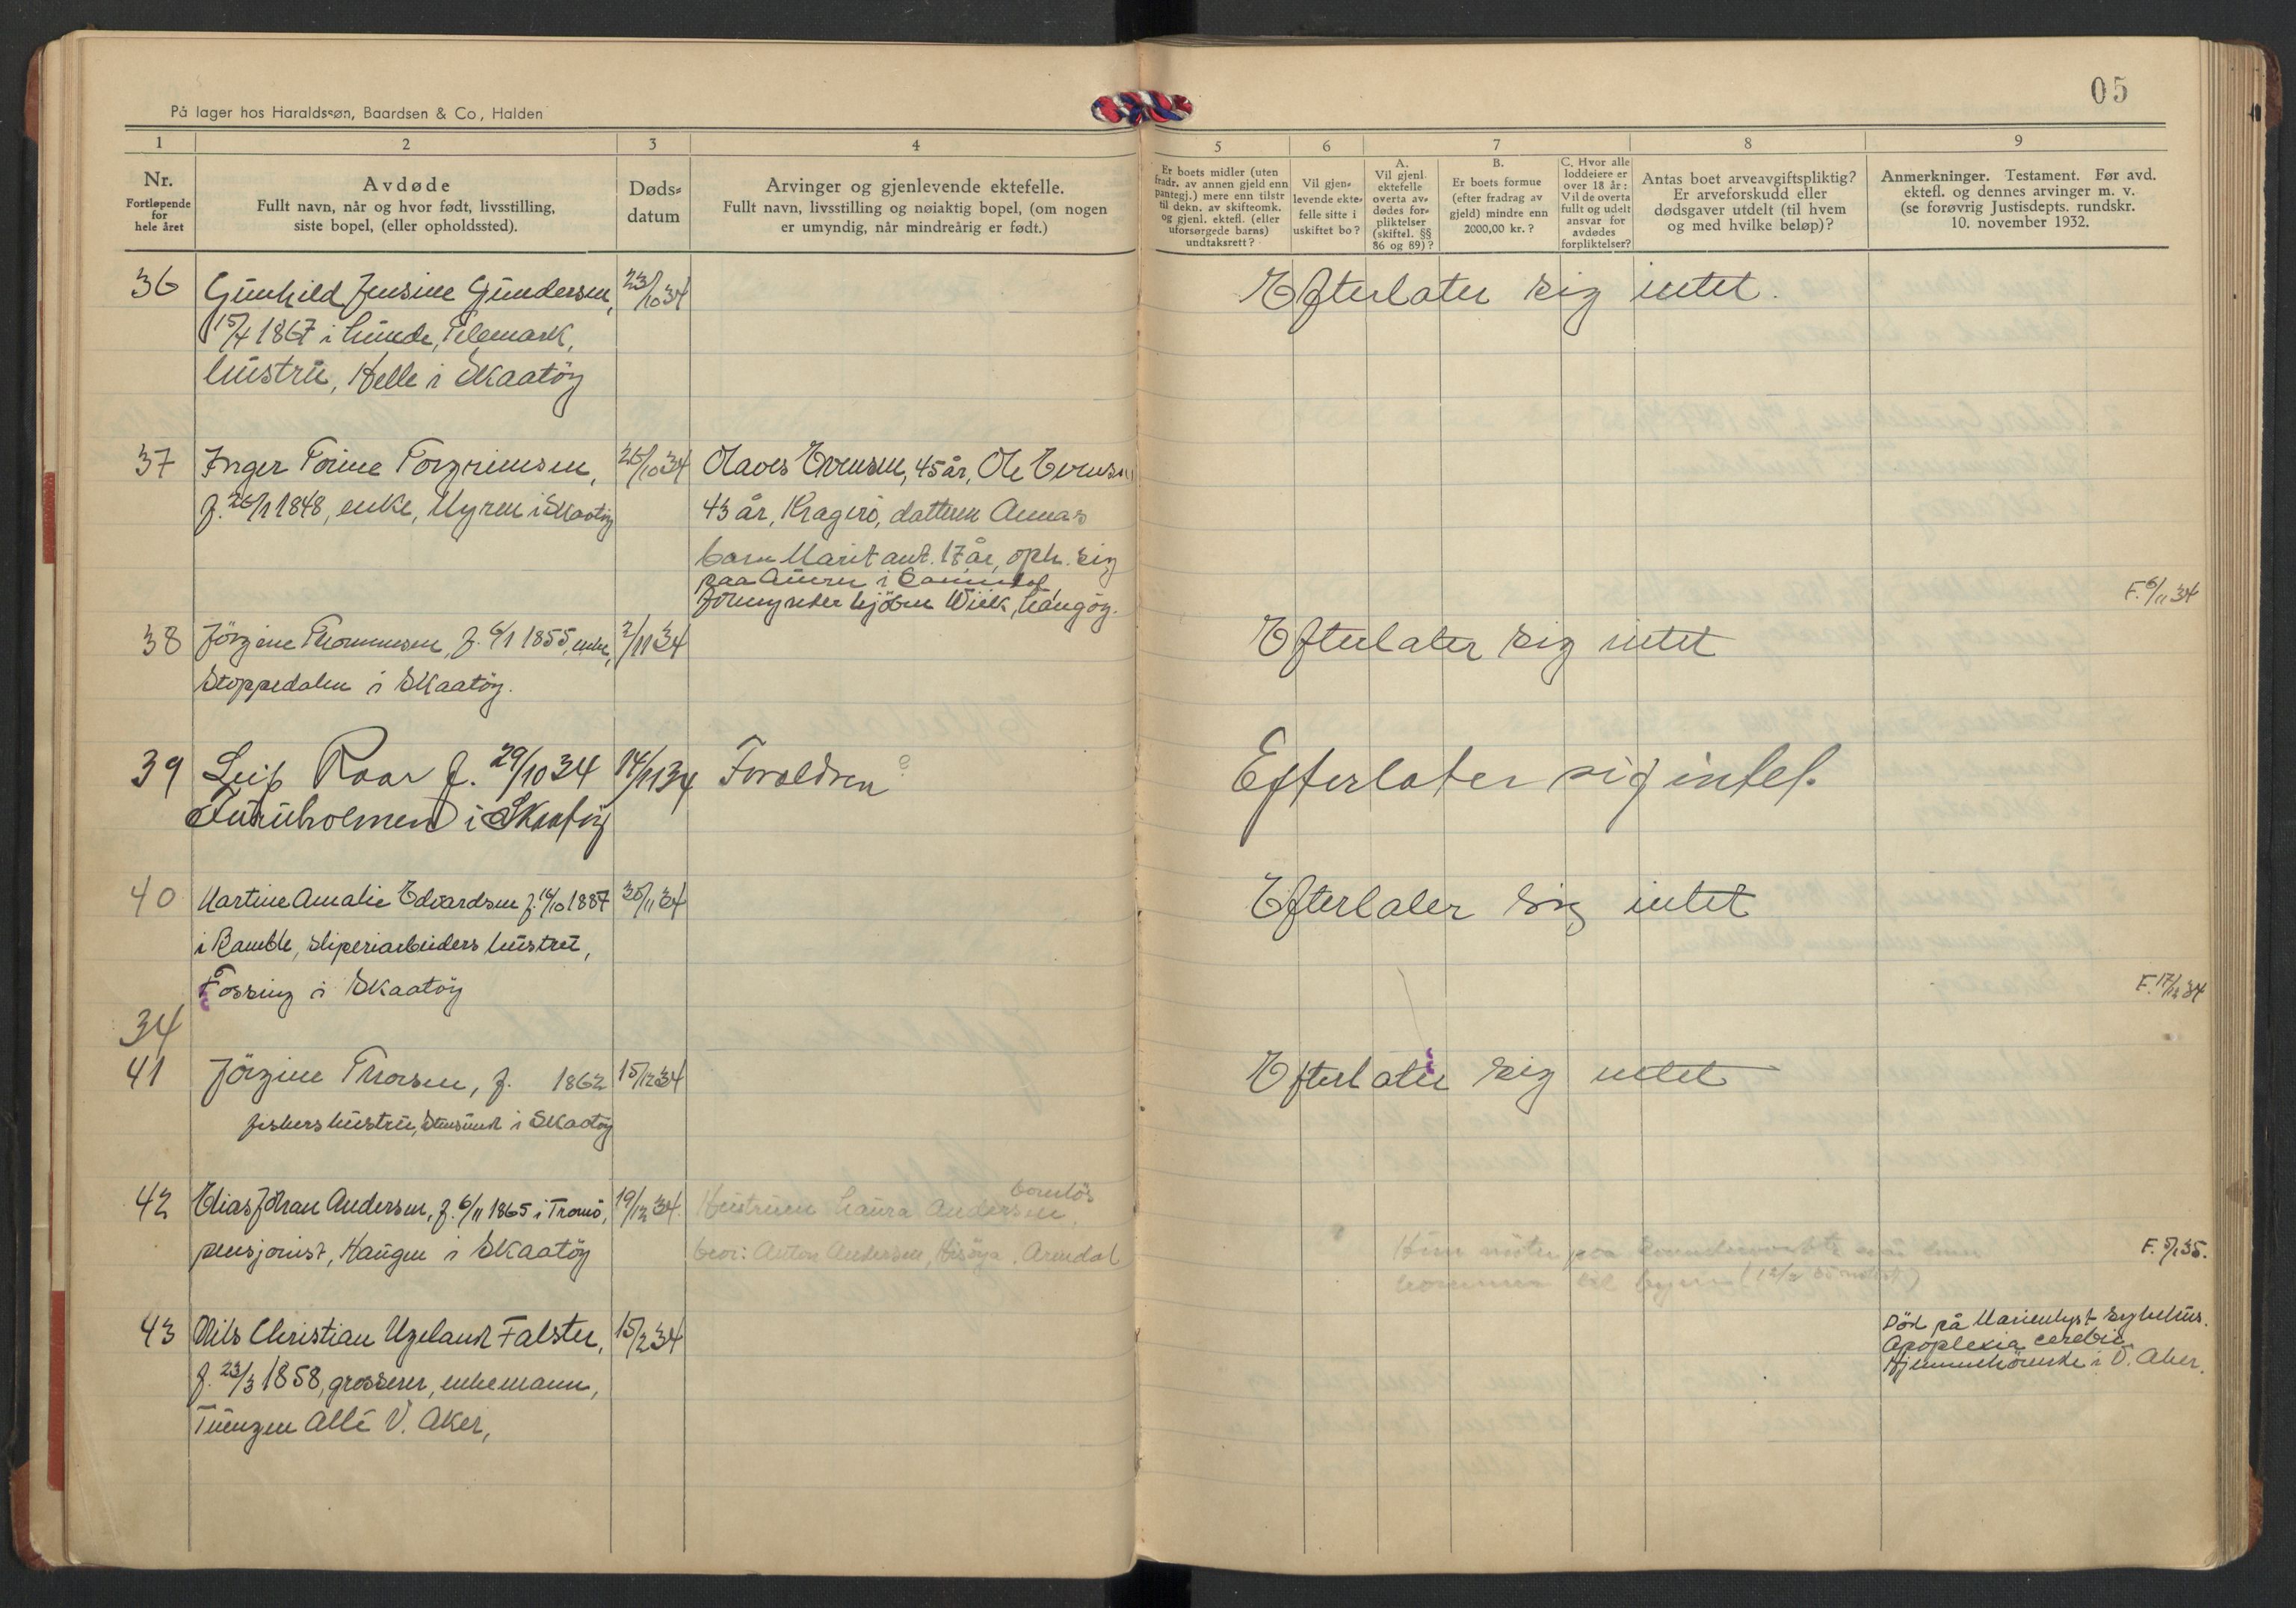 05
På lager hos Haraldssøn, Baardsen & Co, Halden
1 2 3 4 5 6 7 8 9
Nr.
Fortløpende
for
hele året
Avdøde
Fullt navn, når og hvor født, livsstilling,
siste bopel, (eller opholdssted).
Døds-
datum
Arvinger og gjenlevende ektefelle.
Fullt navn, livsstilling og nøiaktig bopel, (om nogen
er umyndig, når mindreårig er født.)
Er boets midler (uten
fradr. av annen gjeld enn
pantegj.) mere enn tilstr
til dekn. av skifteomk.
og gjenl. ektefl. (eller
uforsørgede barns)
undtaksrett?
Vil gjen-
levende ekte-
felle sitte i
uskiftet bo?
A.
Vil gjenl.
ektefelle
overta av-
dødes for-
pliktelser
(skiftel. §§
86 og 89)?
B.
Er boets formue
(efter fradrag av
gjeld) mindre enn
2000,00 kr.?
C. Hvor alle
loddeiere er
over 18 år:
Vil de overta
fullt og udelt
ansvar for
avdødes
forpliktelser?
Antas boet arveavgiftspliktig?
Er arveforskudd eller
dødsgaver utdelt (til hvem
og med hvilke beløp)?
Anmerkninger. Testament. Før avd.
ektefl. og dennes arvinger m. v.
(se forøvrig Justisdepts. rundskr.
10. november 1932.
36 Gunhild Jensine Gundersen, 23/10 34 Efterlater sig intet.
15/4 1867 i Lunde, Telemark,
hustru, Helle i Skaatöy
37 Inger Torine Torgrimsen, 26/10 34 Olaves Evensen, 45 år, Ole Evensen
f. 26/1 1848, enke, Myren i Skaatöy 43 år, Kragerö, datteren Annas
barn Marit ant. 17 år, oph. sig
paa i
Formynder Wiik, Langöy. F. 6/11 34
38 Jörgine Thommesen, f. 6/1 1855, enke, 2/11 34 Efterlater sig intet
Stoppedalen i Skaatöy.
39 Leif Roar f. 29/10 34 14/11 34 Foreldren Efterlater sig intet.
Furuholmen i Skaatöy
40 Martine Amalie Edvardsen f. 16/10 1887 30/11 34 Efterlater sig intet
i Bamble, sliperiarbeiders hustru,
Fossing i Skaatöy F. 17/12 34
34
41 Jörgine Thorsen, f. 1862 15/12 34 Efterlater sig intet
fiskers hustru, Stensund i Skaatöy
42 Elias Johan Andersen, f. 6/11 1865 i Tromö, 19/12 34. Hustruen Laura Andersen, barnlös
pensjonist, Haugen i Skaatöy bror: Anton Andersen, Hisöya, Arendal F. 5/1 35.
Hun möter paa naar hun
kommer til byen
43 Nils Christian Ugeland Falster, 15/2 34 Död på Marienlyst sykehus.
f. 23/3 1858, grosserer, enkemann, Apoplexia cerebri
Tuengen Allé V. Aker, Hjemmehörende i V. Aker.